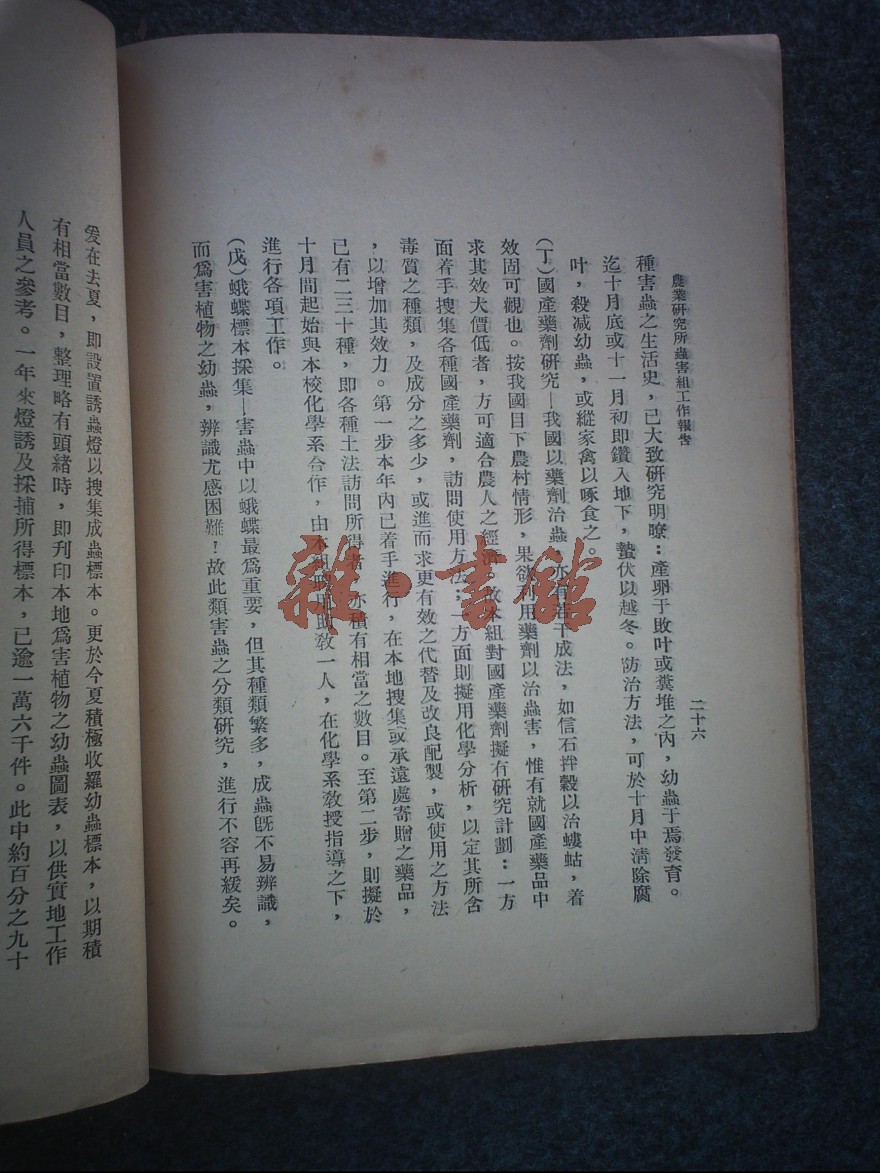 農業研究所蟲害組工作報告
二十六
種害蟲之生活史，已大致研究明瞭：產卵于敗叶或糞堆之內，幼蟲于焉發育。
迄十月底或十一月初即鑽入地下，蟄伏以越冬。防治方法，可於十月中清除腐
叶，殺減幼蟲，或縱家禽以啄食之。
(丁)國產藥劑研究—我國以藥劑治蟲，亦有若干成法，如信石拌穀以治螻蛄，着
效固可觀也。按我國目下農村情形，果欲利用藥劑以治蟲害，惟有就國產藥品中
求其效大價低者，方可適合農人之經濟。故本組對國產藥劑擬有研究計劃：一方
面着手搜集各種國產藥劑，訪問使用方法；一方面則擬用化學分析，以定其所含
毒質之種類，及成分之多少，或進而求更有效之代替及改良配製，或使用之方法
，以增加其效力。第一步本年內已着手進行，在本地搜集或承遠處寄贈之藥品，
已有二三十種，即各種土法訪問所得者，亦積有相當之數目。至第二步，則擬於
十月間起始與本校化學系合作，由本組聘用助敎一人，在化學系敎授指導之下，
進行各項工作。
(戊)蛾蝶標本採集—害蟲中以蛾蝶最爲重要，但其種類繁多，成蟲旣不易辨識，
而爲害植物之幼蟲，辨識尤感困難！故此類害蟲之分類研究，進行不容再緩矣。
爰在去夏，即設置誘蟲燈以搜集成蟲標本。更於今夏積極收羅幼蟲標本，以期積
有相當數目，整理略有頭緒時，即刋印本地爲害植物之幼蟲圖表，以供實地工作
人員之參考。一年來燈誘及採捕所得標本，已逾一萬六千件。此中約百分之九十
雜·書館